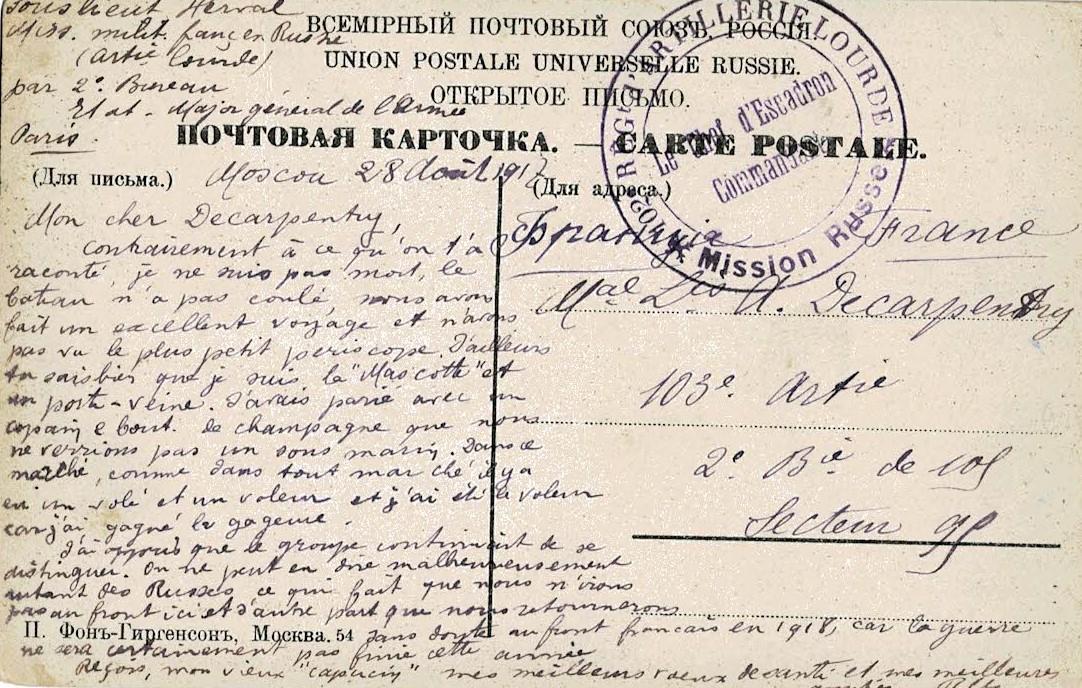 Sous lieut Herval
Miss. milit. franç en Russie
(Artie Lourde)
par 2e Bureau
Etat-Major général de l'Armée
Paris.
ВСЕМІРНЫЙ ПОЧТОВЫЙ СОЮЗЪ. РОССІЯ.
UNION POSTALE UNIVERSELLE RUSSIE.
ОТКРЫТОЕ ПИСЬМО.
ПОЧТОВАЯ КАРТОЧКА. — CARTE POSTALE.
D'ARTILLERIE LOURDE
Le Chef d'Escadron
Commandant
Mission Russe
(Для письма.)
Moscou 28 Août 1917
Mon cher Decarpentry,
contrairement à ce qu'on t'a
raconté, je ne suis pas mort, le
bateau n'a pas coulé, nous avons
fait un excellent voyage et n'avons
pas vu le plus petit periscope. D'ailleurs
tu sais bien que je suis la "Mascotte" et
un porte-veine. J'avais parié avec un
copain 2 bout. de champagne que nous
ne verrions pas un sous marin. Dans ce
marché, comme dans tout marché il y a
eu un volé et un voleur et j'ai été le voleur
car j'ai gagné la gageure.
J'ai appris que le groupe continuait de se
distinguer. On ne peut en dire malheureusement
autant des Russes ce qui fait que nous n'irons
pas au front ici et d'autre part que nous retournerons
sans doute au front français en 1918, car la guerre
ne sera certainement pas finie cette année
Reçois, mon vieux "capucin" mes meilleurs voeux de santé et mes meilleures
(Для адреса.)
Франція France
Mal Lis A. Decarpentry
103e Artie
2e Bie de 105
Secteur 95
П. Фонъ-Гиргенсонъ, Москва. 54